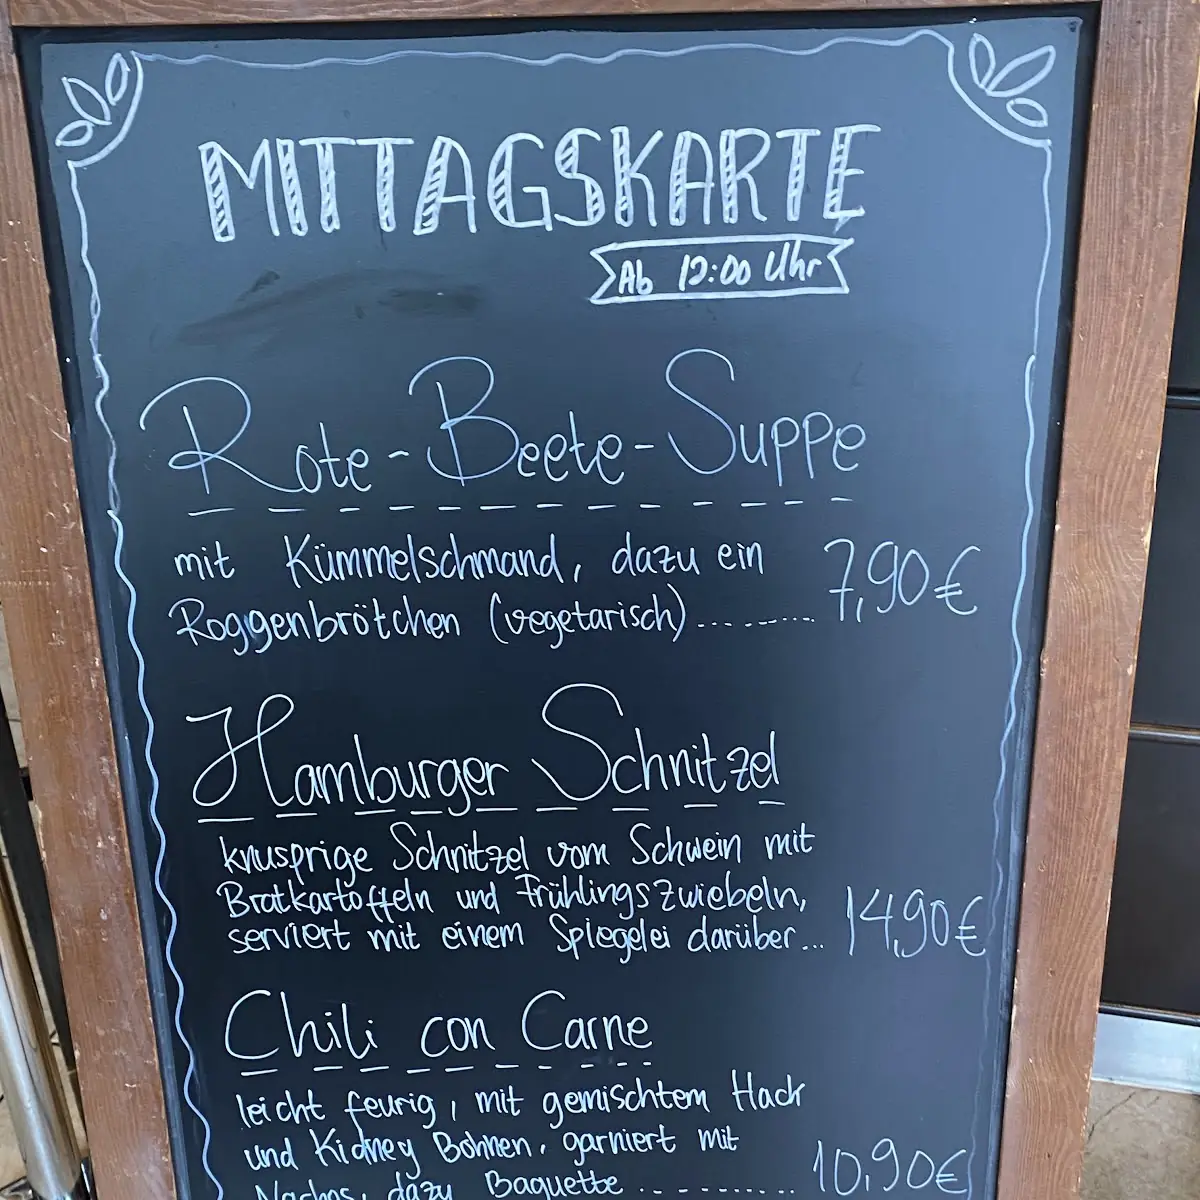 MITTAGSKARTE
Ab 12:00 Uhr
Rote-Beete-Suppe
mit Kümmelschmand, dazu ein
Roggenbrötchen (vegetarisch)......... 7,90€
Hamburger Schnitzel
knusprige Schnitzel vom Schwein mit
Bratkartoffeln und Frühlingszwiebeln,
serviert mit einem Spiegelei darüber... 14,90€
Chili con Carne
leicht feurig, mit gemischtem Hack
und Kidney Bohnen, garniert mit
Nachos, dazu Baguette ........... 10,90€